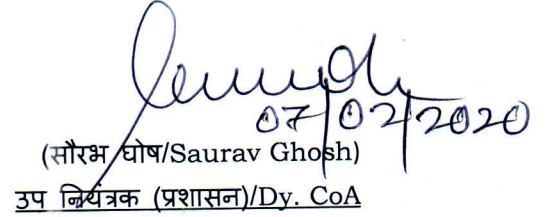 07/02/2020
(सौरभ घोष/Saurav Ghosh)
उप नियंत्रक (प्रशासन)/Dy. CoA